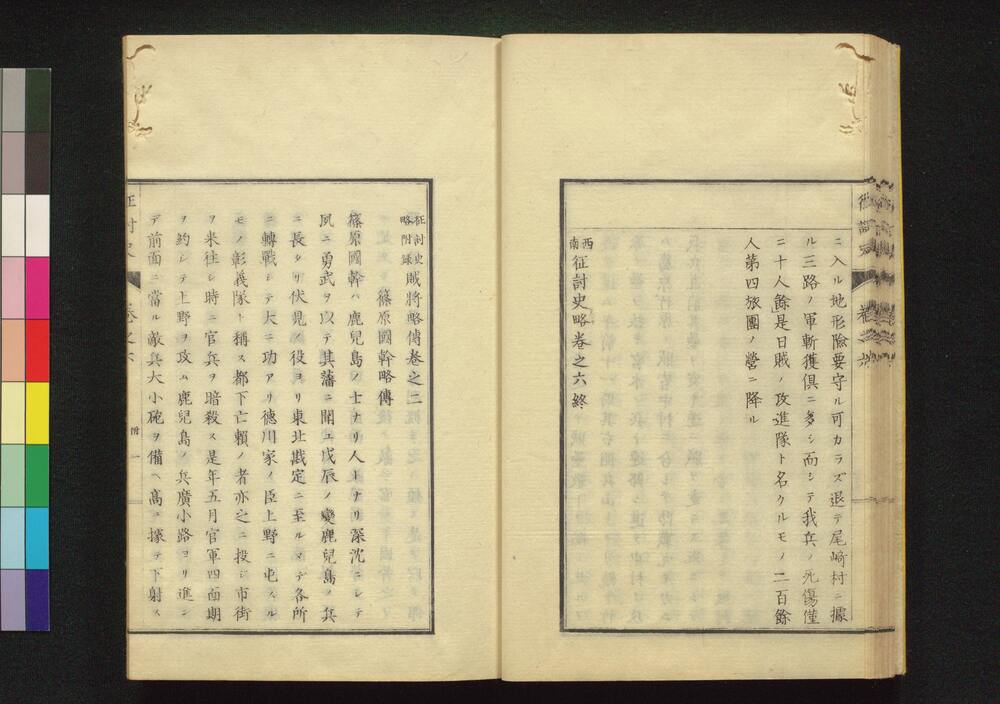 ニ入ル地形險要守ル可カラズ退テ尾﨑村ニ據
ル三路ノ軍斬獲俱ニ多シ而シテ我兵ノ死傷僅
ニ十人餘是日賊ノ攻進隊ト名クルモノ二百餘
人第四旅團ノ營ニ降ル
西南征討史略卷之六終
征討史略附録賊將略傳卷之二
篠原國幹略傳
篠原國幹ハ鹿兒島ノ士ナリ人トナリ深沈ニシテ
夙ニ勇武ヲ以テ其藩ニ聞ユ戊辰ノ變鹿兒島ノ兵
ニ長タリ伏見ノ役ヨリ東北戡定ニ至ルマデ各所
ニ轉戰シテ大ニ功アリ德川家ノ臣上野ニ屯スル
モノ彰義隊ト稱ス都下亡賴ノ者亦之ニ投シ市街
ヲ来往シ時ニ官兵ヲ暗殺ス是年五月官軍四面期
ヲ約シテ上野ヲ攻ム鹿兒島ノ兵廣小路ヨリ進ン
デ前面ニ當ル敵兵大小砲ヲ備ヘ髙ニ據テ下射ス
征討史 卷之六 附 一